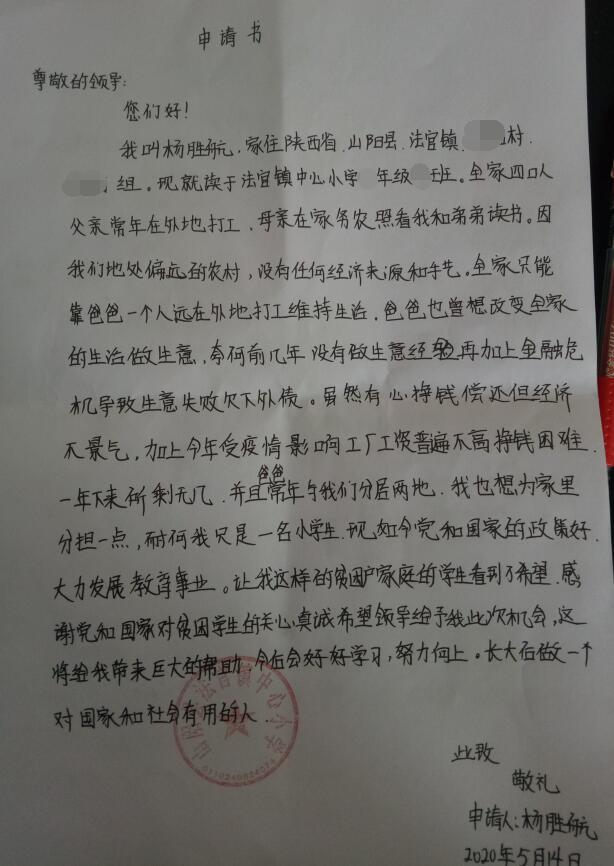 申请书
尊敬的领导:
您们好!
我叫杨胜航,家住陕西省.山阳县.法官镇.村.
组。现就读于法官镇中心小学年级班。全家四口人
父亲常年在外地打工、母亲在家务农照看我和弟弟读书。因
我们地处偏远的农村,没有任何经济来源和手艺。全家只能
靠爸爸一个人远在外地打工维持生活.爸爸也曾想改变全家
的生活做生意,奈何前几年没有做生意经验再加上金融危
机导致生意失败欠下外债。虽然有心挣钱偿还但经济
不景气,加上今年受疫情影响工厂工资普遍不高挣钱困难.
一年下来所剩无几.并且爸爸常年与我们分居两地.我也想为家里
分担一点,耐何我只是一名小学生.现如今党和国家的政策好.
大力发展教育事业。让我这样的贫困户家庭的学生看到了希望.感
谢党和国家对贫困学生的关心真诚希望领导给予我此次机会,这
将给我带来巨大的帮助,今后会好好学习,努力向上。长大后做一个
对国家和社会有用的人.
山阳县法官镇中心小学
此致
敬礼
申请人:杨胜航
2020年5月14日